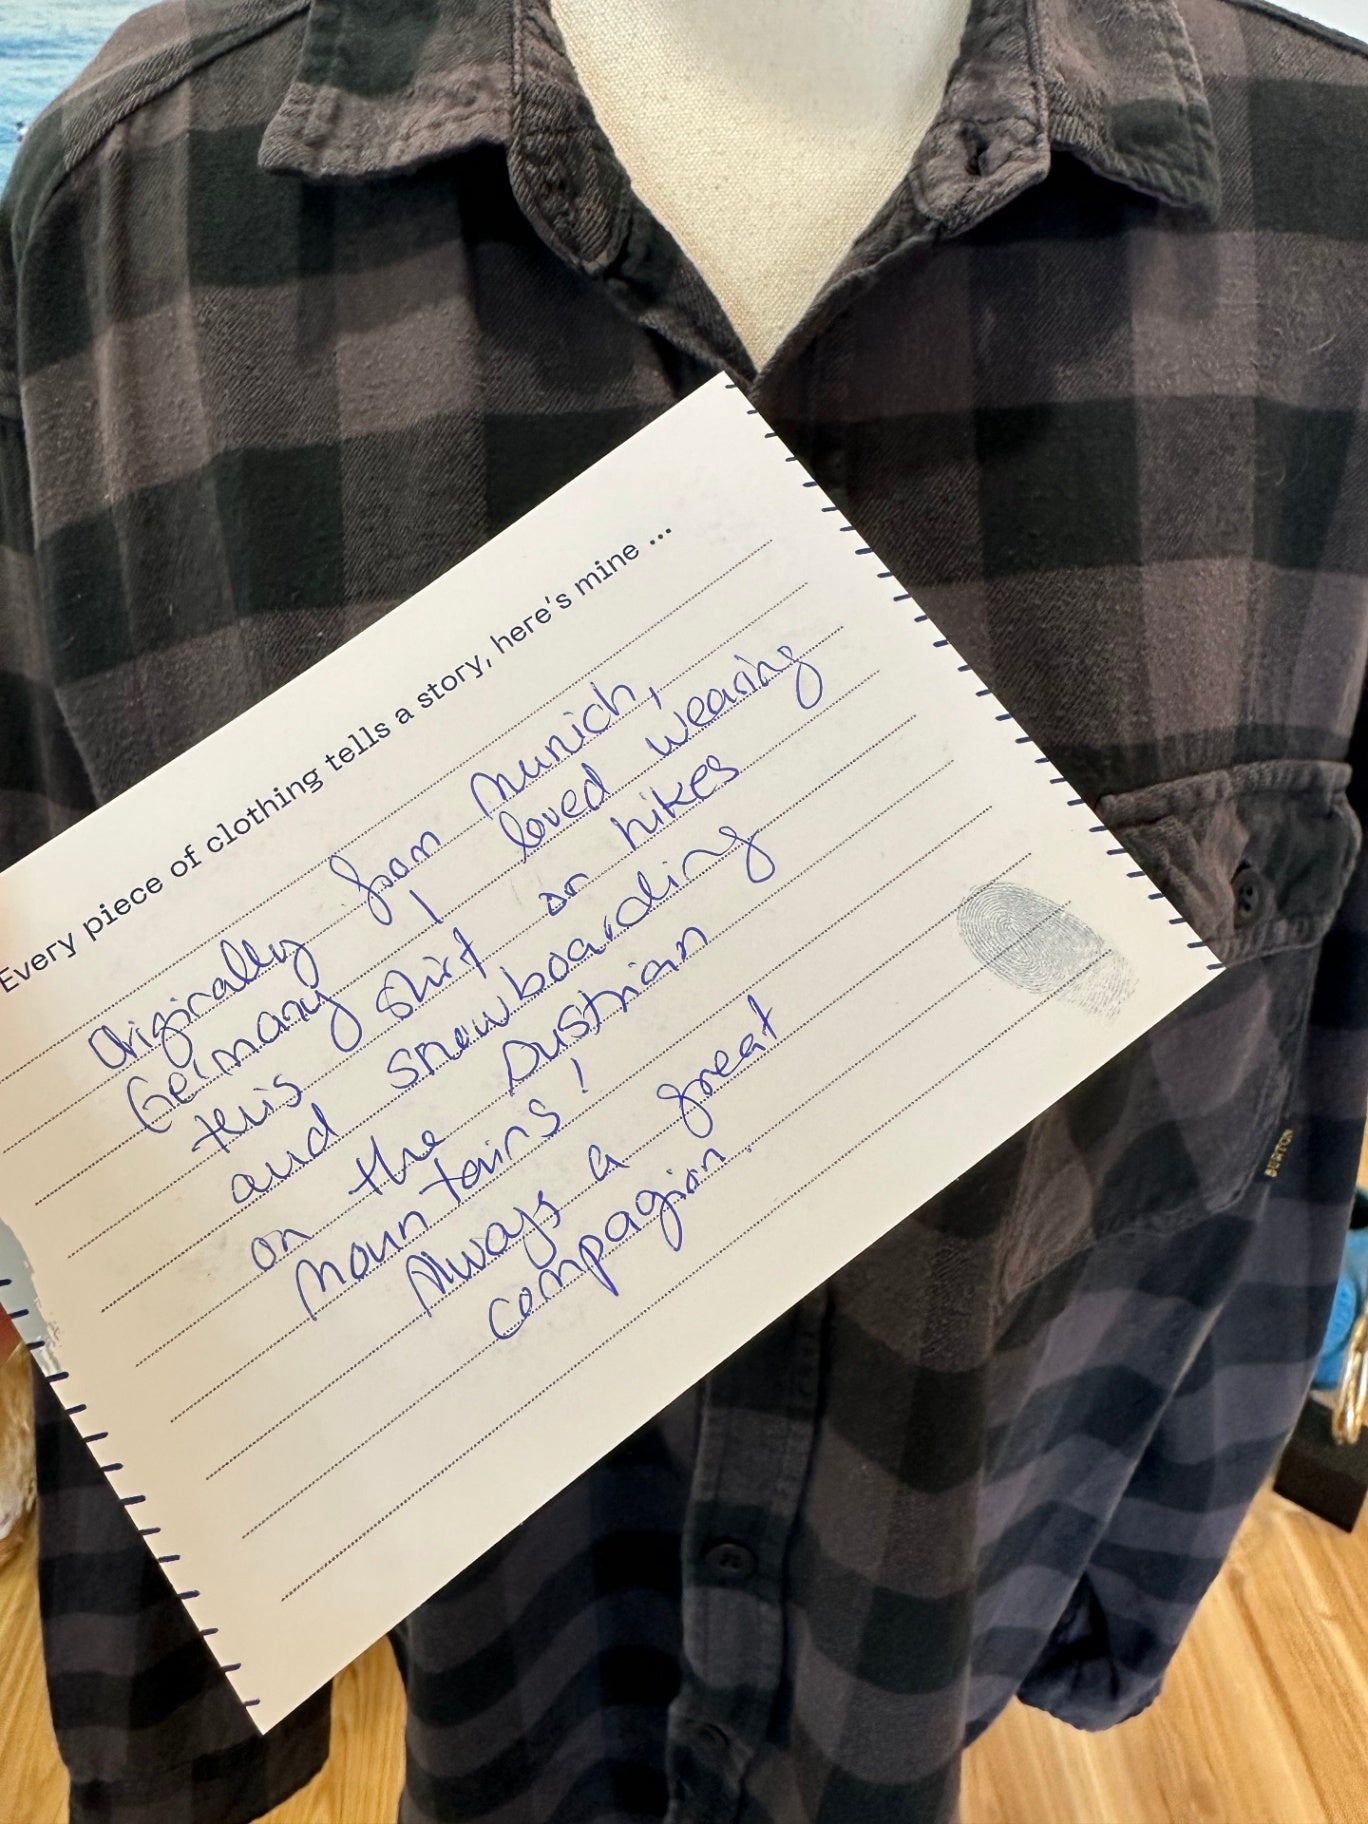 Every piece of clothing tells a story, here's mine ...
Originally from Munich,
Germany I loved wearing
this shirt on hikes
and snowboarding
on the Austrian
Mountains!
Always a great
compagion.
BURTON